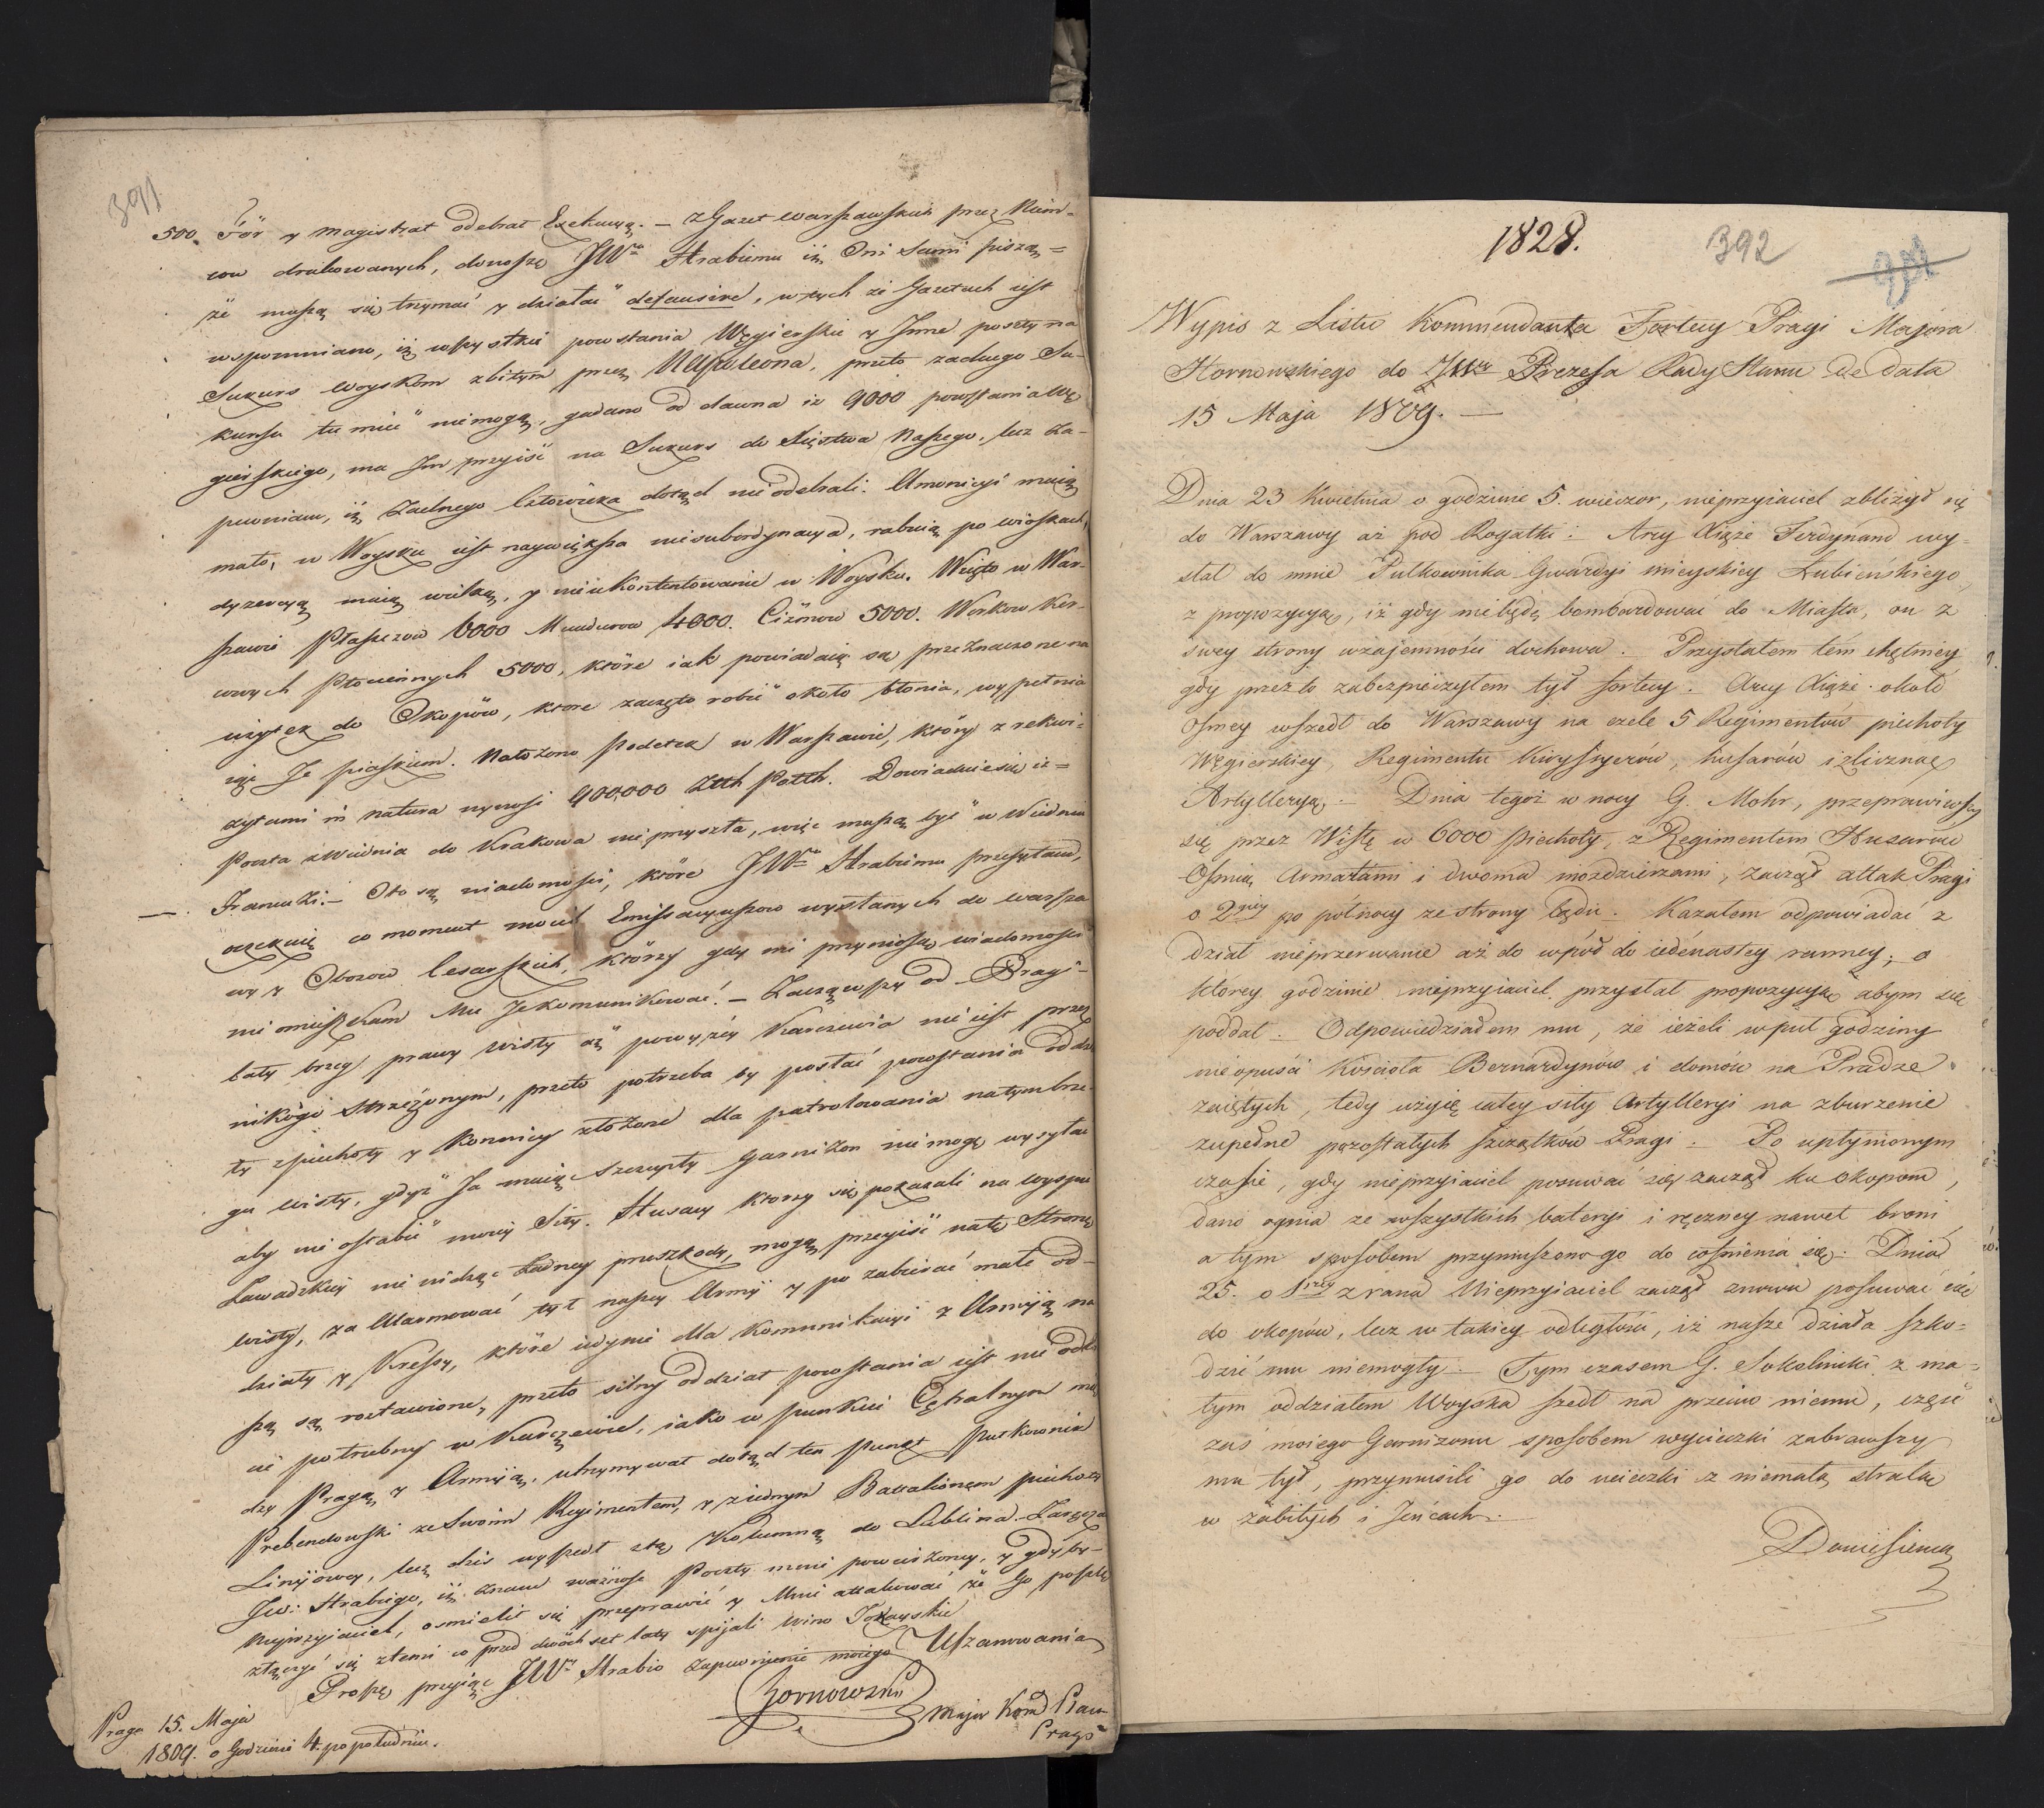 391
500. För y magistrat odebrał Exekucyą. — Z Gazet warszawskich przez Niem-
ców drukowanych, donoszę JWu Hrabiemu iż Oni Sami piszą =
że muszą się trzymać y działać defansive, w tych że Gazetach iest
wspomniano, iż wszystkie powstania Węgierskie y Inne poszły na
Sukurs woyskom zbitym przez Napoleona, przeto żadnego Su-
kursu tu mieć nie mogą, gadano od dawna iż 9000 powstania Wę-
gierskiego, ma Im przyiść na Sukurs do Xięstwa Naszego, lecz za-
pewniam, iż Żadnego Człowieka dotąd nie odebrali. Amonicyi maią
mało, w Woysku iest naywiększa niesubordynacya, rabuią po wioskach,
dyzercyą maią wielką, y nieukontentowanie w Woysku. Wzięto w War-
szawie Płaszczów 6000 Mundurów 4000. Ciżmow 5000. Workow
Płóciennych 5000, które iak powiadaią są przeznaczone na
użytek do Okopów, które zaczęto robić około błonia, wypełnia
iąc Je piaskiem. Nałożono Podatek w Warszawie, który z rekwi-
zycami in natura wynosi 900,000 Złłh Polłh. Dowiaduiesię iż =
Poczta z Widnia do Krakowa nie przyszła, więc muszą być w Wiedniu
— Francuzi. — Oto są wiadomości, które JWu Hrabiemu przesyłam,
oczekuię co moment moich Emissaryuszow wysłanych do warsza
wy y Obozow Cesarskich, którzy gdy mi przyniosą wiadomości
nie omieszkam Mu Je komunikować. — Zacząwszy od Pragi —
Cały brzeg prawy wisły aż powyżey Karczewia nie iest przez
nikogo strzeżonym, przeto potrzeba by posłać powstania oddzia
ły z piechoty y Konnicy złożone dla patrolowania na tym brze-
gu wisły, gdyż Ja maiąc szczupły Garnizon nie mogę wysyłać
aby nie osłabić moiey Siły. Husary ktorzy się pokazali na wyspie
Zawadzkiey nie widząc żadney przeszkody, mogą przeyiść na tę Stronę
wisły, za Alarmować tył naszey Armii y po zabierać małe od-
działy y Kressy, które iedynie dla komunikacyi z Armiją na
szą są roztawione, przeto silny oddział powstania iest nie odbi
cie potrzebny w Karczewie, iako w punkcie Cętralnym mię
dzy Pragą y Armiją, utrzymywał dotąd ten punkt pułkownik
Prebendowski ze Swoim Regimentem, y z iednym Batalionem piechoty
Liniiowey, lecz dziś wyszedł z tą Kolumną do Lublina. Zaręcza
Jw: Hrabiego, iż znam ważność Poczty mnie powierzoney, y gdyby —
Nieprzyjaciel, ośmielił się przeprawić y Mnie attakować że Go poszlę
złączyć się z temi co przed dwóch set laty spijali wino Tokayskie
Proszę przyiąć JWy Hrabio zapewnienie moiego Uszanowania
Hornowski
Major Komd Placu
Pragi
Praga 15. Maja
1809. o Godzinie 4. po południu.
1828.
392
Wypis z Listu Kommendanta Fortecy Pragi Majora
Hornowskiego do JWgo Prezesa Rady Stanu de data
15 Maja 1809. —
Dnia 23 Kwietnia o godzinie 5. wieczor, nieprzyiaciel zbliżył się
do Warszawy aż pod Rogatki: Arcy Xiąże Ferdynand wy-
słał do mnie Pułkownika Gwardyi mieyskiey Łubieńskiego,
z propozycyą, iż gdy nie będę bombardować do Miasta, on z
swey strony wzajemności dochowa. Przystałem tém chętniey
gdy przez to zabezpieczyłem tył fortecy. Arcy Xiąże około
Osmey wszedł do Warszawy na czele 5 Regimentów piechoty
Węgierskiey, Regimentu Kiryssyerów, husarów i z liczną
Artylleryą. — Dnia tegoż w nocy G. Mohr, przeprawiwszy
się przez Wisłę w 6000 piechoty, z Regimentem Huzarów
Osmią Armatami i dwoma mozdzierzami, zaczął attak Pragi
o 2giey po północy ze strony lądu. Kazałem odpowiadać z
dział nieprzerwanie aż do wpół do iedénastey ranney; o
którey godzinie nieprzyiaciel przysłał propozycyą abym się
poddał. Odpowiedziałem mu, że ieżeli w pół godziny
nieopuści Kościoła Bernardynów i domów na Pradze
zaiętych, tedy użyię całey siły Artylleryi na zburzenie
zupełne pozostałych szczątków Pragi. Po upłynionym
czasie, gdy nieprzyiaciel posuwać się zaczął ku okopom,
dano ognia ze wszystkich bateryi i ręczney nawet broni,
a tym sposobem przymuszono go do cofnienia się. Dnia
25. o 1szey z rana Nieprzyiaciel zaczął znowu posuwać się
do okopów, lecz w takiey odległości, iż nasze działa szko-
dzić mu niemogły. — Tym czasem G. Sokolnicki z ma-
łym oddziałem Woyska szedł na przeciw niemu, część
zaś moiego Garnizonu sposobem wycieczki zabrawszy
mu tył, przymusili go do ucieczki z niemałą stratą
w zabitych i Jeńcach. —
Doniesienia